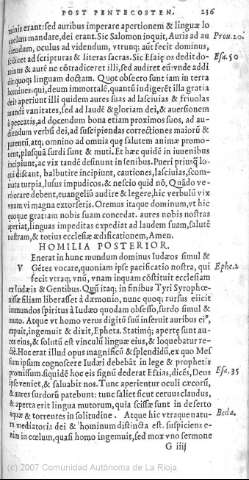 POST PENTECOSTEN. 236
minis erant: sed auribus imperare apertionem & linguæ lo
quelam mandare, dei erant. Sic Salomon inquit, Auris ad au Prou. 20.
diendum, oculus ad videndum, vtrunq; aút fecit dominus,
scilicet ad scripturas & literas sacras. Sic Esaię deditdo- Esa. 50
minus & auré ne cōtradiceret illi, sed audiret eú vnde addi
dit quoq; linguam doctam. Quot obsecro sunt iam in terra
homines qui, deum immortalé, quantú indigerét illa gratia
dei aperiunt illi quidem aures suas ad lasciuias & friuolas
mundi vanitates, sed ad laudé & gloriam dei, & auersionem
à peccato, ad docendum bona etiam proximos suos, ad au-
diendum verbū dei, ad suscipiendas correctiones maiorū &
parentū, atq; omnino ad omnia quę salutem animæ promo-
uent, plusquā surdi sunt & muti. Et hæc quidem ab infantia
incipiunt, ac vix tandé desinunt in senibus. Pueri priusq̃ lo-
qui discant, balbutire incipiunt, cantiones, lasciuias, scom-
mata turpia, lusus impudicos, & nescio quid nō. Quādo ve-
nerare debent, euangeliū audire & legere, hic verbulū vix
vnum vi magna extorseris. Oremus itaque dominum, vt hic
quoque gratiam nobis suam concedat. aures nobis nostras
aperiat, linguas impeditas expediat ad laudem suam, salutē
nostram, & totius ecclesiæ ædificationem, Amen.
HOMILIA POSTERIOR.
Venerat in hunc mundum dominus Iudæos simul &
Gétes vocare, quoniam ipse pacificatio nostra, qui Ephe. 2
fecit vtraq; vnū, vnam inquam cōstituit ecclesiam
ex Iudæis & Gentibus. Qui itaq; in finibus Tyri Syrophœ-
nissæ filiam liberasset à dæmonio, nunc quoq; rursus eiicit
immundos spiritus à Iudæo quodam obsesso, surdo simul &
muto. Atque vt homo verus digitū suū inseruit auribus ei,
expuit, ingemuit & dixit, Epheta. Statimq; apertę sunt au-
res eius, & solutū est vinculū linguæ eius, & loquebatur re-
ctè. Hoc erat illud opus magnificū & splendidū, ex quo Mes
siam ipsum cognoscere Iudæi debebāt in lege & prophetis
promissum. siquidé hoc eis signū dederat Esaias, dicés, Deus Esa. 35
ipse veniet, & saluabit nos. Tunc aperientur oculi cæcorū,
& aures surdorū patebunt: tunc saliet sicut ceruus claudus,
& aperta erit lingua mutorum, quia scissæ sunt in deserto
aquæ & torrentes in solitudine. Atque hic vtraque natu- Beda.
ra mediatoris dei & hominum distincta est. suspiciens e-
nim in cœlum, quasi homo ingemuit, sed mox vno sermone
G iiij
(c) 2007 Comunidad Autónoma de La Rioja